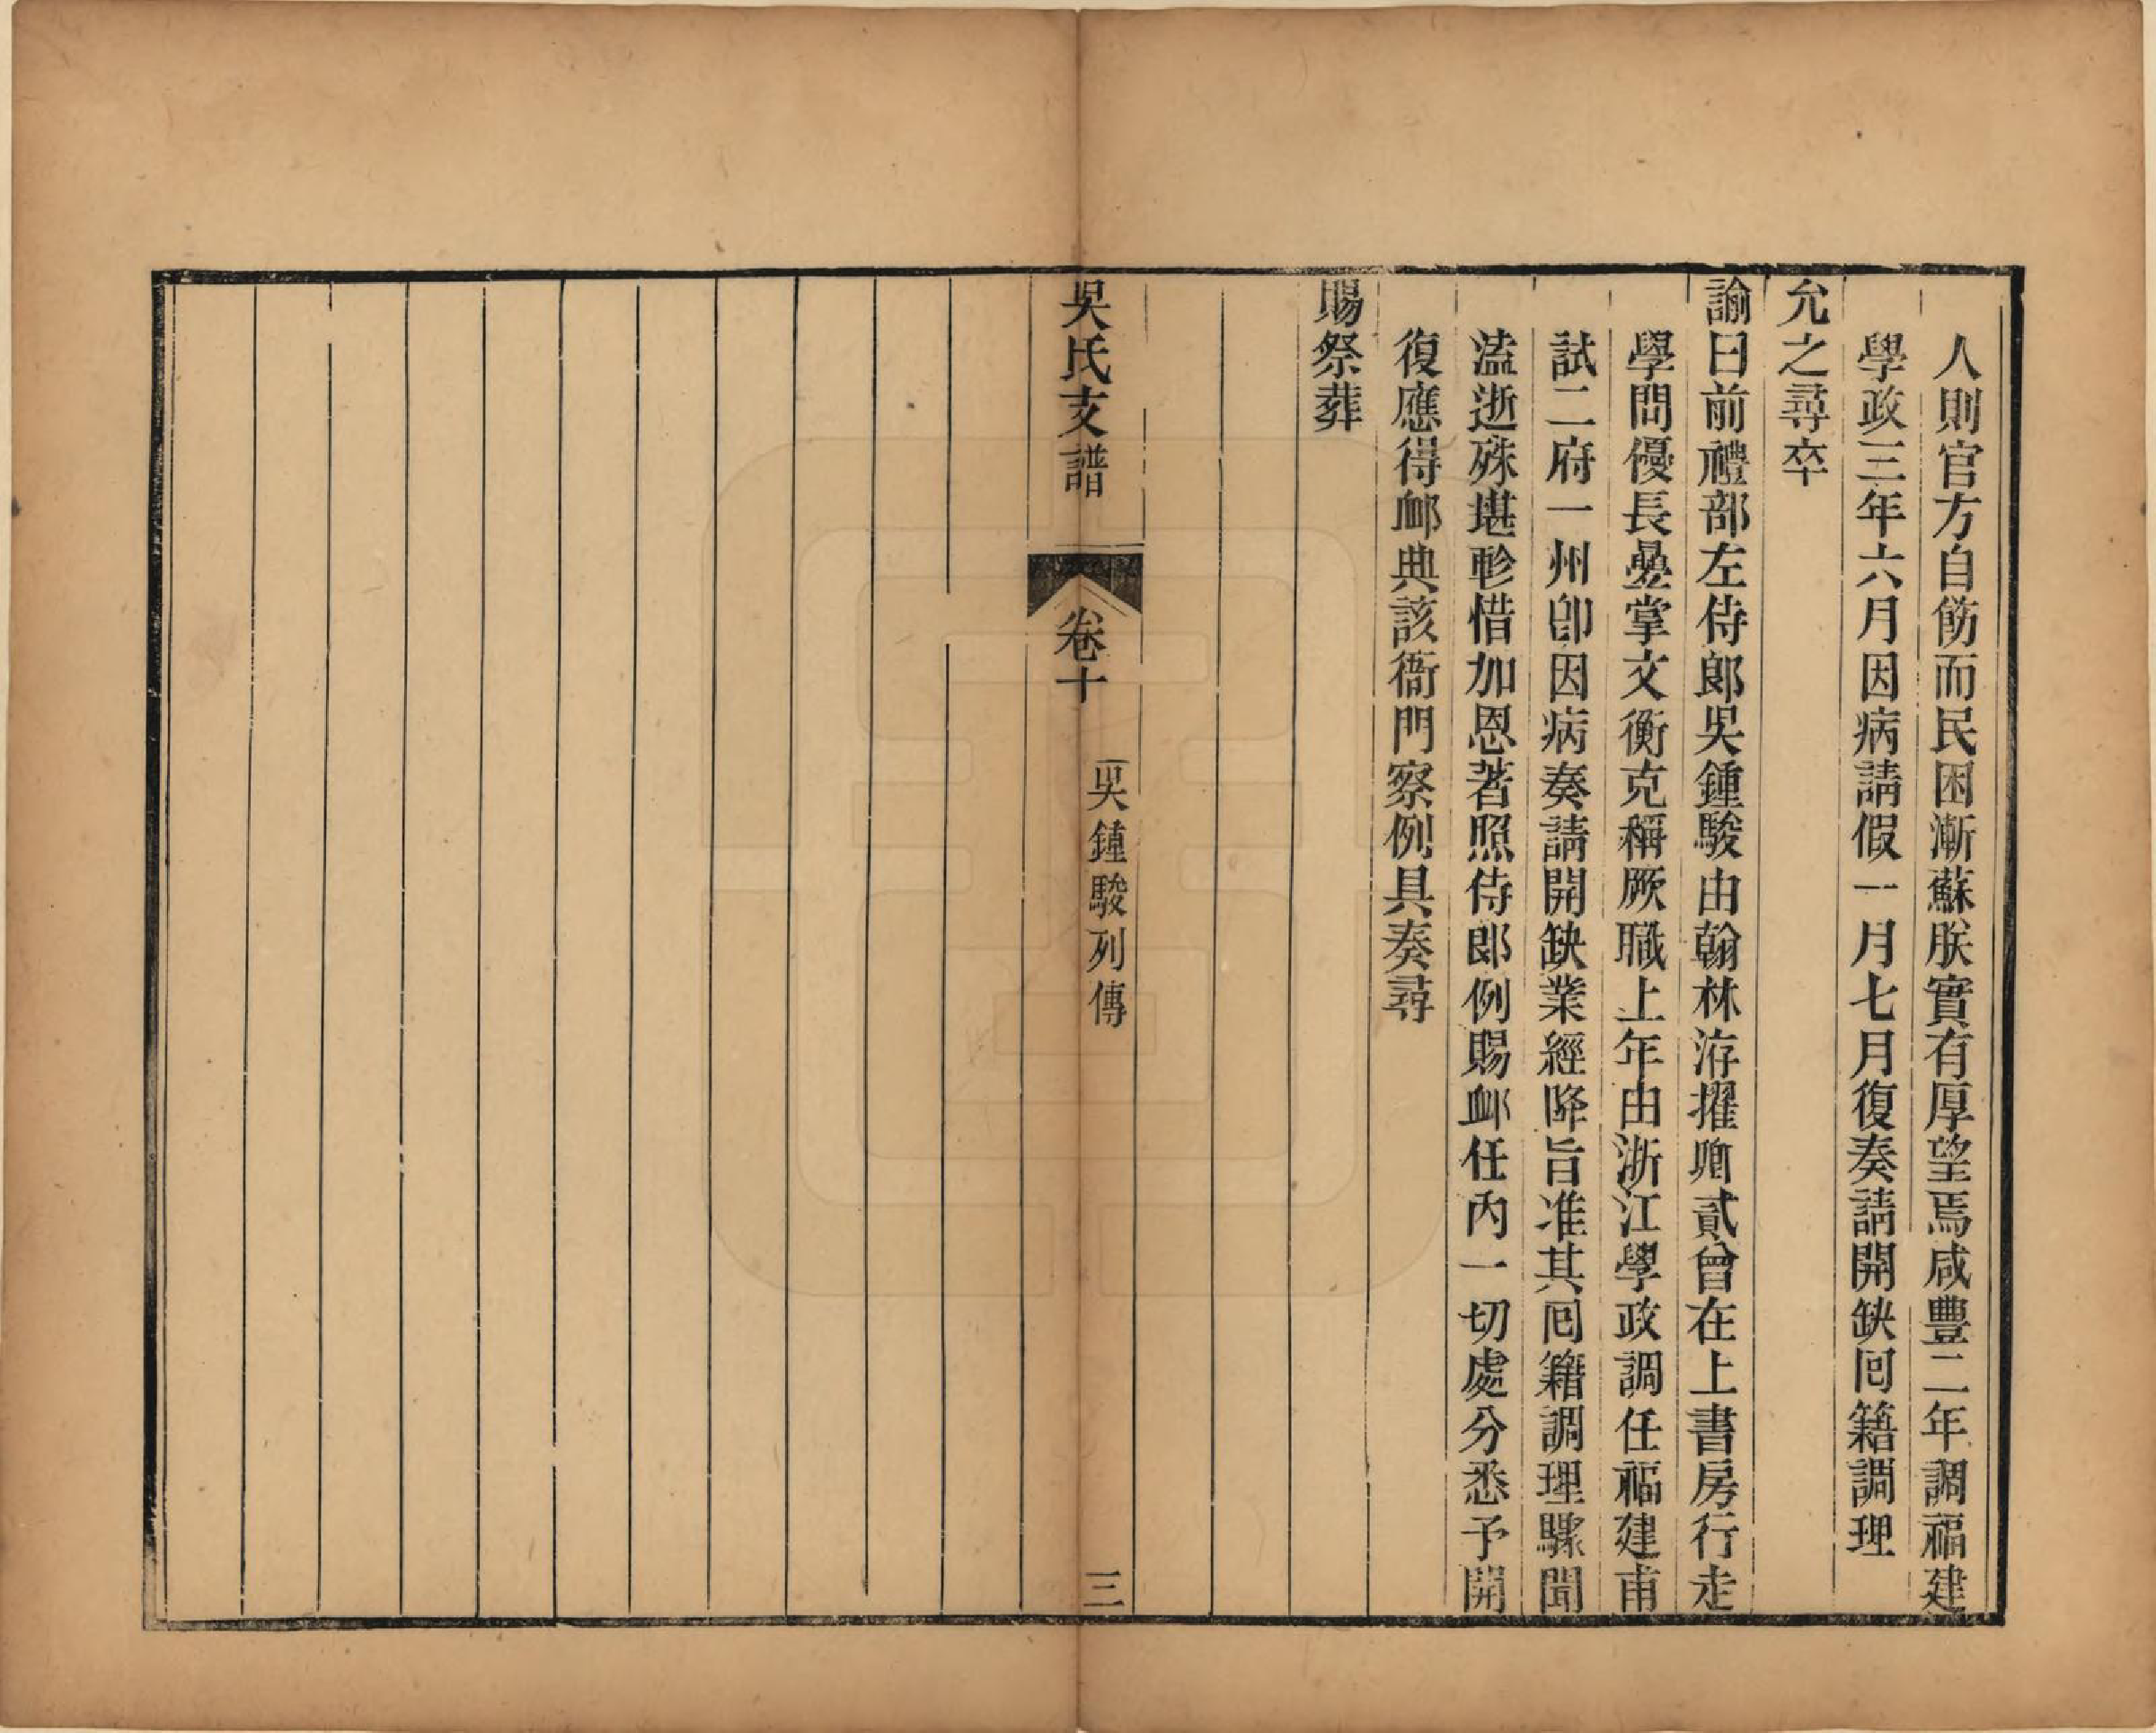 人則官方自飭而民困漸蘇朕實有厚望焉咸豐二年調福建
學政三年六月因病請假一月七月復奏請開缺囘籍調理
允之尋卒
諭曰前禮部左侍郎吳鍾駿由翰林洊擢卿貳曾在上書房行走
學問優長疊掌文衡克稱厥職上年由浙江學政調任福建甫
試二府一州卽因病奏請開缺業經降旨准其囘籍調理驟聞
溘逝殊堪軫惜加恩著照侍郎例賜卹任內一切處分悉予開
復應得卹典該衙門察例具奏尋
賜祭葬
吳氏支譜
卷十
吳鍾駿列傳
三